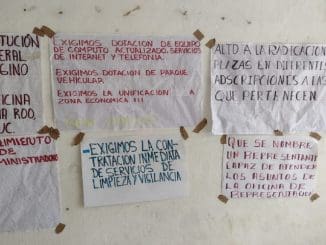 TUCIÓN
ERAL
GINO
CINA
NA ROO,
UC.
LIMIENTO
DE
MINISTRADOR
EXIGIMOS DOTACION DE EQUIPO
DE COMPUTO ACTUALIZADO, SERVICIOS
DE INTERNET Y TELEFONIA.
EXIGIMOS DOTACION DE PARQUE
VEHICULAR.
EXIGIMOS LA UNIFICACION A
ZONA ECONOMICA III
EXIGIMOS LA CON-
TRATACION INMEDIATA
DE SERVICIOS DE
LIMPIEZA Y VIGILANCIA
ALTO A LA RADICACION
PLAZAS EN DIFERENTES
ADSCRIPCIONES A LAS
QUE PERTENECEN
QUE SE NOMBRE
UN REPRESENTANTE
CAPAZ DE ATENDER
LOS ASUNTOS DE
LA OFICINA DE
REPRESENTACION